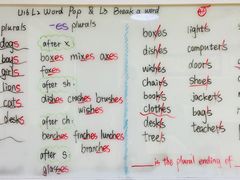 U6 L2 Word Pop & L3 Break a word
plurals
-es plurals
dogs
boys
girls
lions
cats
desks
after x
boxes mixes axes
foxes
after sh:
dishes crashes brushes
wishes
after ch:
benches finches lunches
branches
after s:
glasses
boxes
dishes
wishes
chairs
books
clothes
desks
trees
lights
computers
doors
shoes
jackets
bags
teachers
is the plural ending of